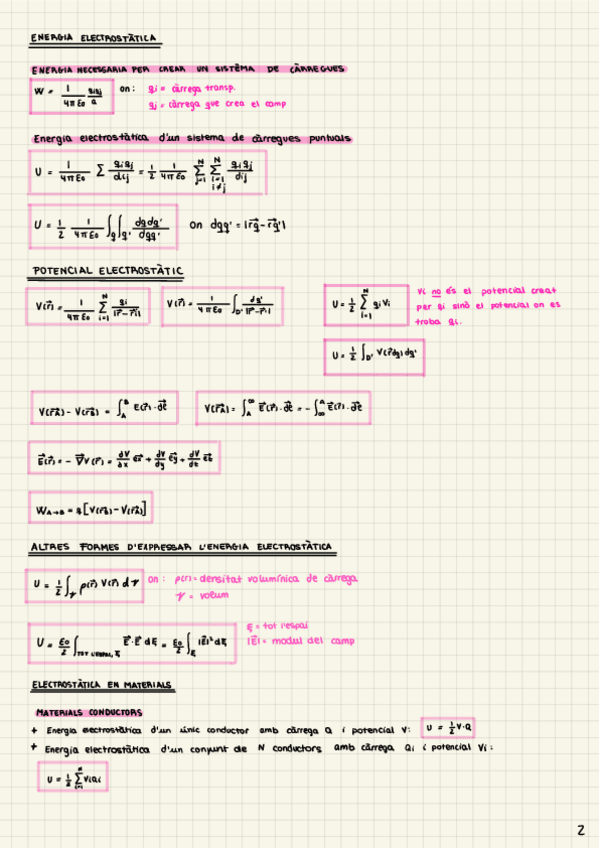 ENERGIA ELECTROSTÀTICA
ENERGIA NECESSARIA PER CREAR UN SISTÈMA DE CÀRREGUES
W = 1/(4πε₀) qiqj/a on: qi = càrrega transp.
qj = càrrega que crea el camp
Energia electrostàtica d'un sistema de càrregues puntuals
U = 1/(4πε₀) Σ qiqj/dij = 1/2 1/(4πε₀) Σ_{j=1}^{N} Σ_{i=1, i≠j}^{N} qiqj/dij
U = 1/2 1/(4πε₀) ∫q ∫q' dqdq'/dqq' on dqq' = |r⃗q - r⃗q'|
POTENCIAL ELECTROSTÀTIC
V(r⃗) = 1/(4πε₀) Σ_{i=1}^{N} qi/|r⃗-r⃗i| V(r⃗) = 1/(4πε₀) ∫_{D'} dq'/|r⃗-r⃗'| U = 1/2 Σ_{i=1}^{N} qi Vi
Vi no és el potencial creat
per qi sinó el potencial on es
troba qi.
U = 1/2 ∫_{D'} V(r⃗dq) dq'
V(r⃗A) - V(r⃗B) = ∫_A^B E(r⃗)·dl⃗ V(r⃗A) = ∫_A^∞ E⃗(r⃗)·dl⃗ = - ∫_∞^A E⃗(r⃗)·dl⃗
E⃗(r⃗) = - ∇⃗V(r⃗) = dV/dx e⃗x + dV/dy e⃗y + dV/dz e⃗z
W_{A→B} = q [V(r⃗B) - V(r⃗A)]
ALTRES FORMES D'EXPRESSAR L'ENERGIA ELECTROSTÀTICA
U = 1/2 ∫_𝒱 ρ(r⃗) V(r⃗) d𝒱 on: ρ(r) = densitat volumínica de càrrega
𝒱 = volum
U = ε₀/2 ∫_{TOT L'ESPAI, ξ} E⃗·E⃗ dξ = ε₀/2 ∫_ξ |E⃗|² dξ
ξ = tot l'espai
|E⃗| = modul del camp
ELECTROSTÀTICA EN MATERIALS
MATERIALS CONDUCTORS
+ Energia electrostàtica d'un únic conductor amb càrrega Q i potencial V: U = 1/2 V·Q
+ Energia electrostàtica d'un conjunt de N conductors amb càrrega Qi i potencial Vi:
U = 1/2 Σ_{i=1}^{N} ViQi
2